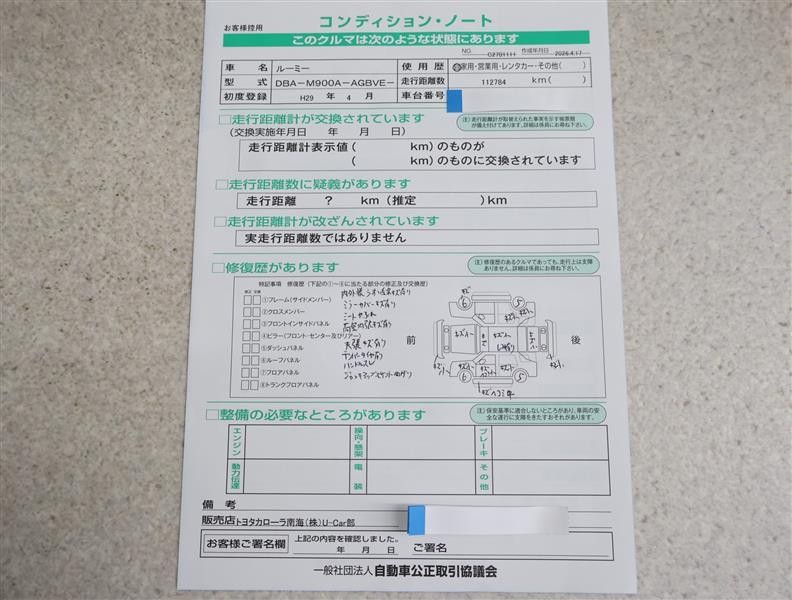 お客様控用
コンディション・ノート
このクルマは次のような状態にあります
NO. C2701111 作成年月日 2026.4.17
車名 ルーミー 使用歴 自家用・営業用・レンタカー・その他( )
型式 DBA－M900A－AGBVE－ 走行距離数 112784 km( )
初度登録 H29 年 4 月 車台番号
□走行距離計が交換されています
(交換実施年月日 年 月 日)
注)走行距離計が取替えられた事実を示す帳票類
が備え付けてあります。詳細は係員にお尋ね下さい。
走行距離計表示値( km)のものが
( km)のものに交換されています
□走行距離数に疑義があります
走行距離 ? km(推定 )km
□走行距離計が改ざんされています
実走行距離数ではありません
□修復歴があります
注)修復歴のあるクルマであっても、走行上は支障
ありません。詳細は係員にお尋ね下さい。
特記事項 修復歴(下記の①～⑧に当たる部分の修正及び交換歴)
修正 交換
①フレーム(サイドメンバー)
②クロスメンバー
③フロントインサイドパネル
④ピラー(フロント・センター及びリアー)
⑤ダッシュパネル
⑥ルーフパネル
⑦フロアパネル
⑧トランクフロアパネル
ミラーカバーキズ有り
天張キズ有り
前
後
キズ
6
5
6
5
□整備の必要なところがあります
注)保安基準に適合しないところがあり、車両の安
全な運行に支障をきたすおそれがあります。
エンジン
操向・懸架
ブレーキ
動力伝達
電装
その他
備考
販売店 トヨタカローラ南海(株)U-Car部
お客様ご署名欄
上記の内容を確認しました。
年 月 日 ご署名
一般社団法人 自動車公正取引協議会